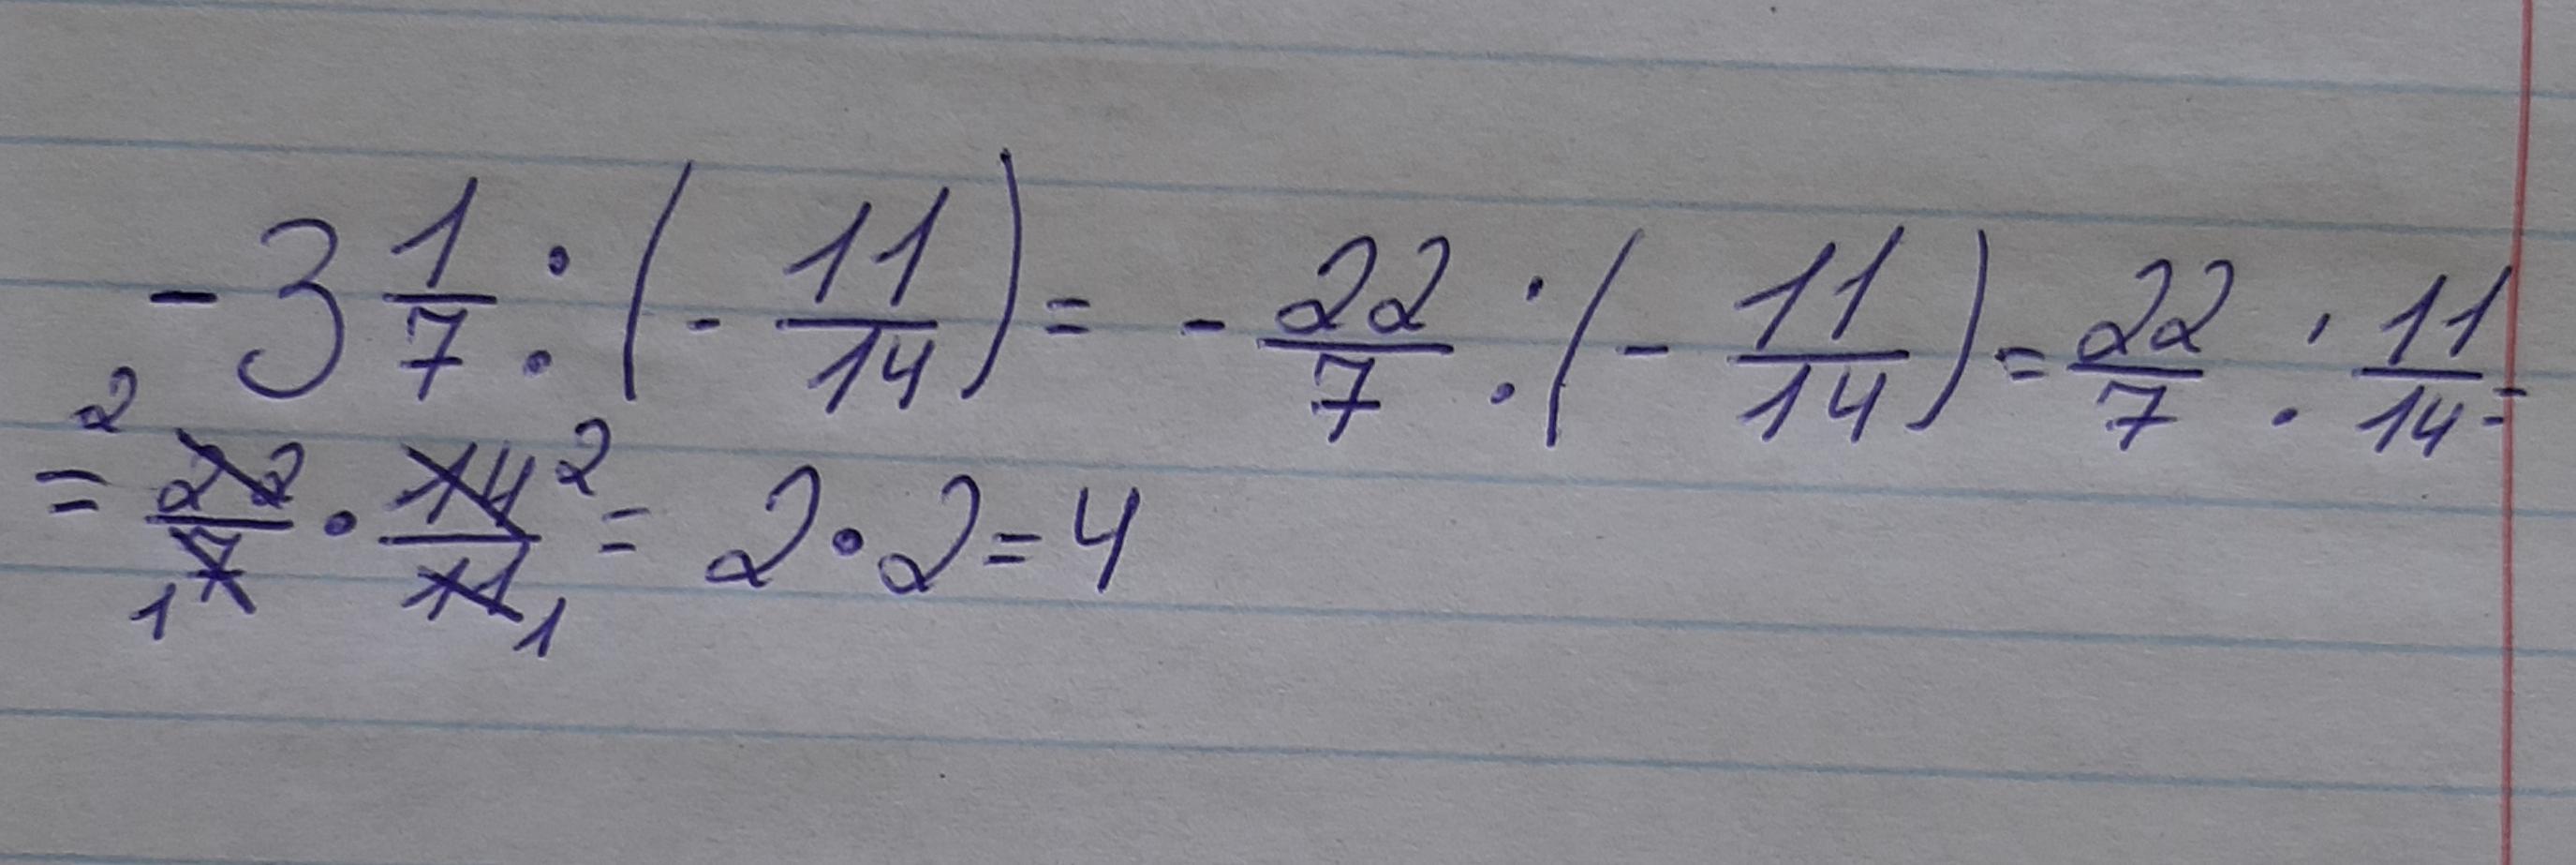 -3 1/7 : (- 11/14) = - 22/7 : (- 11/14) = 22/7 : 11/14 =
= 2 22/7 1 · 14/11 2 1 = 2 · 2 = 4